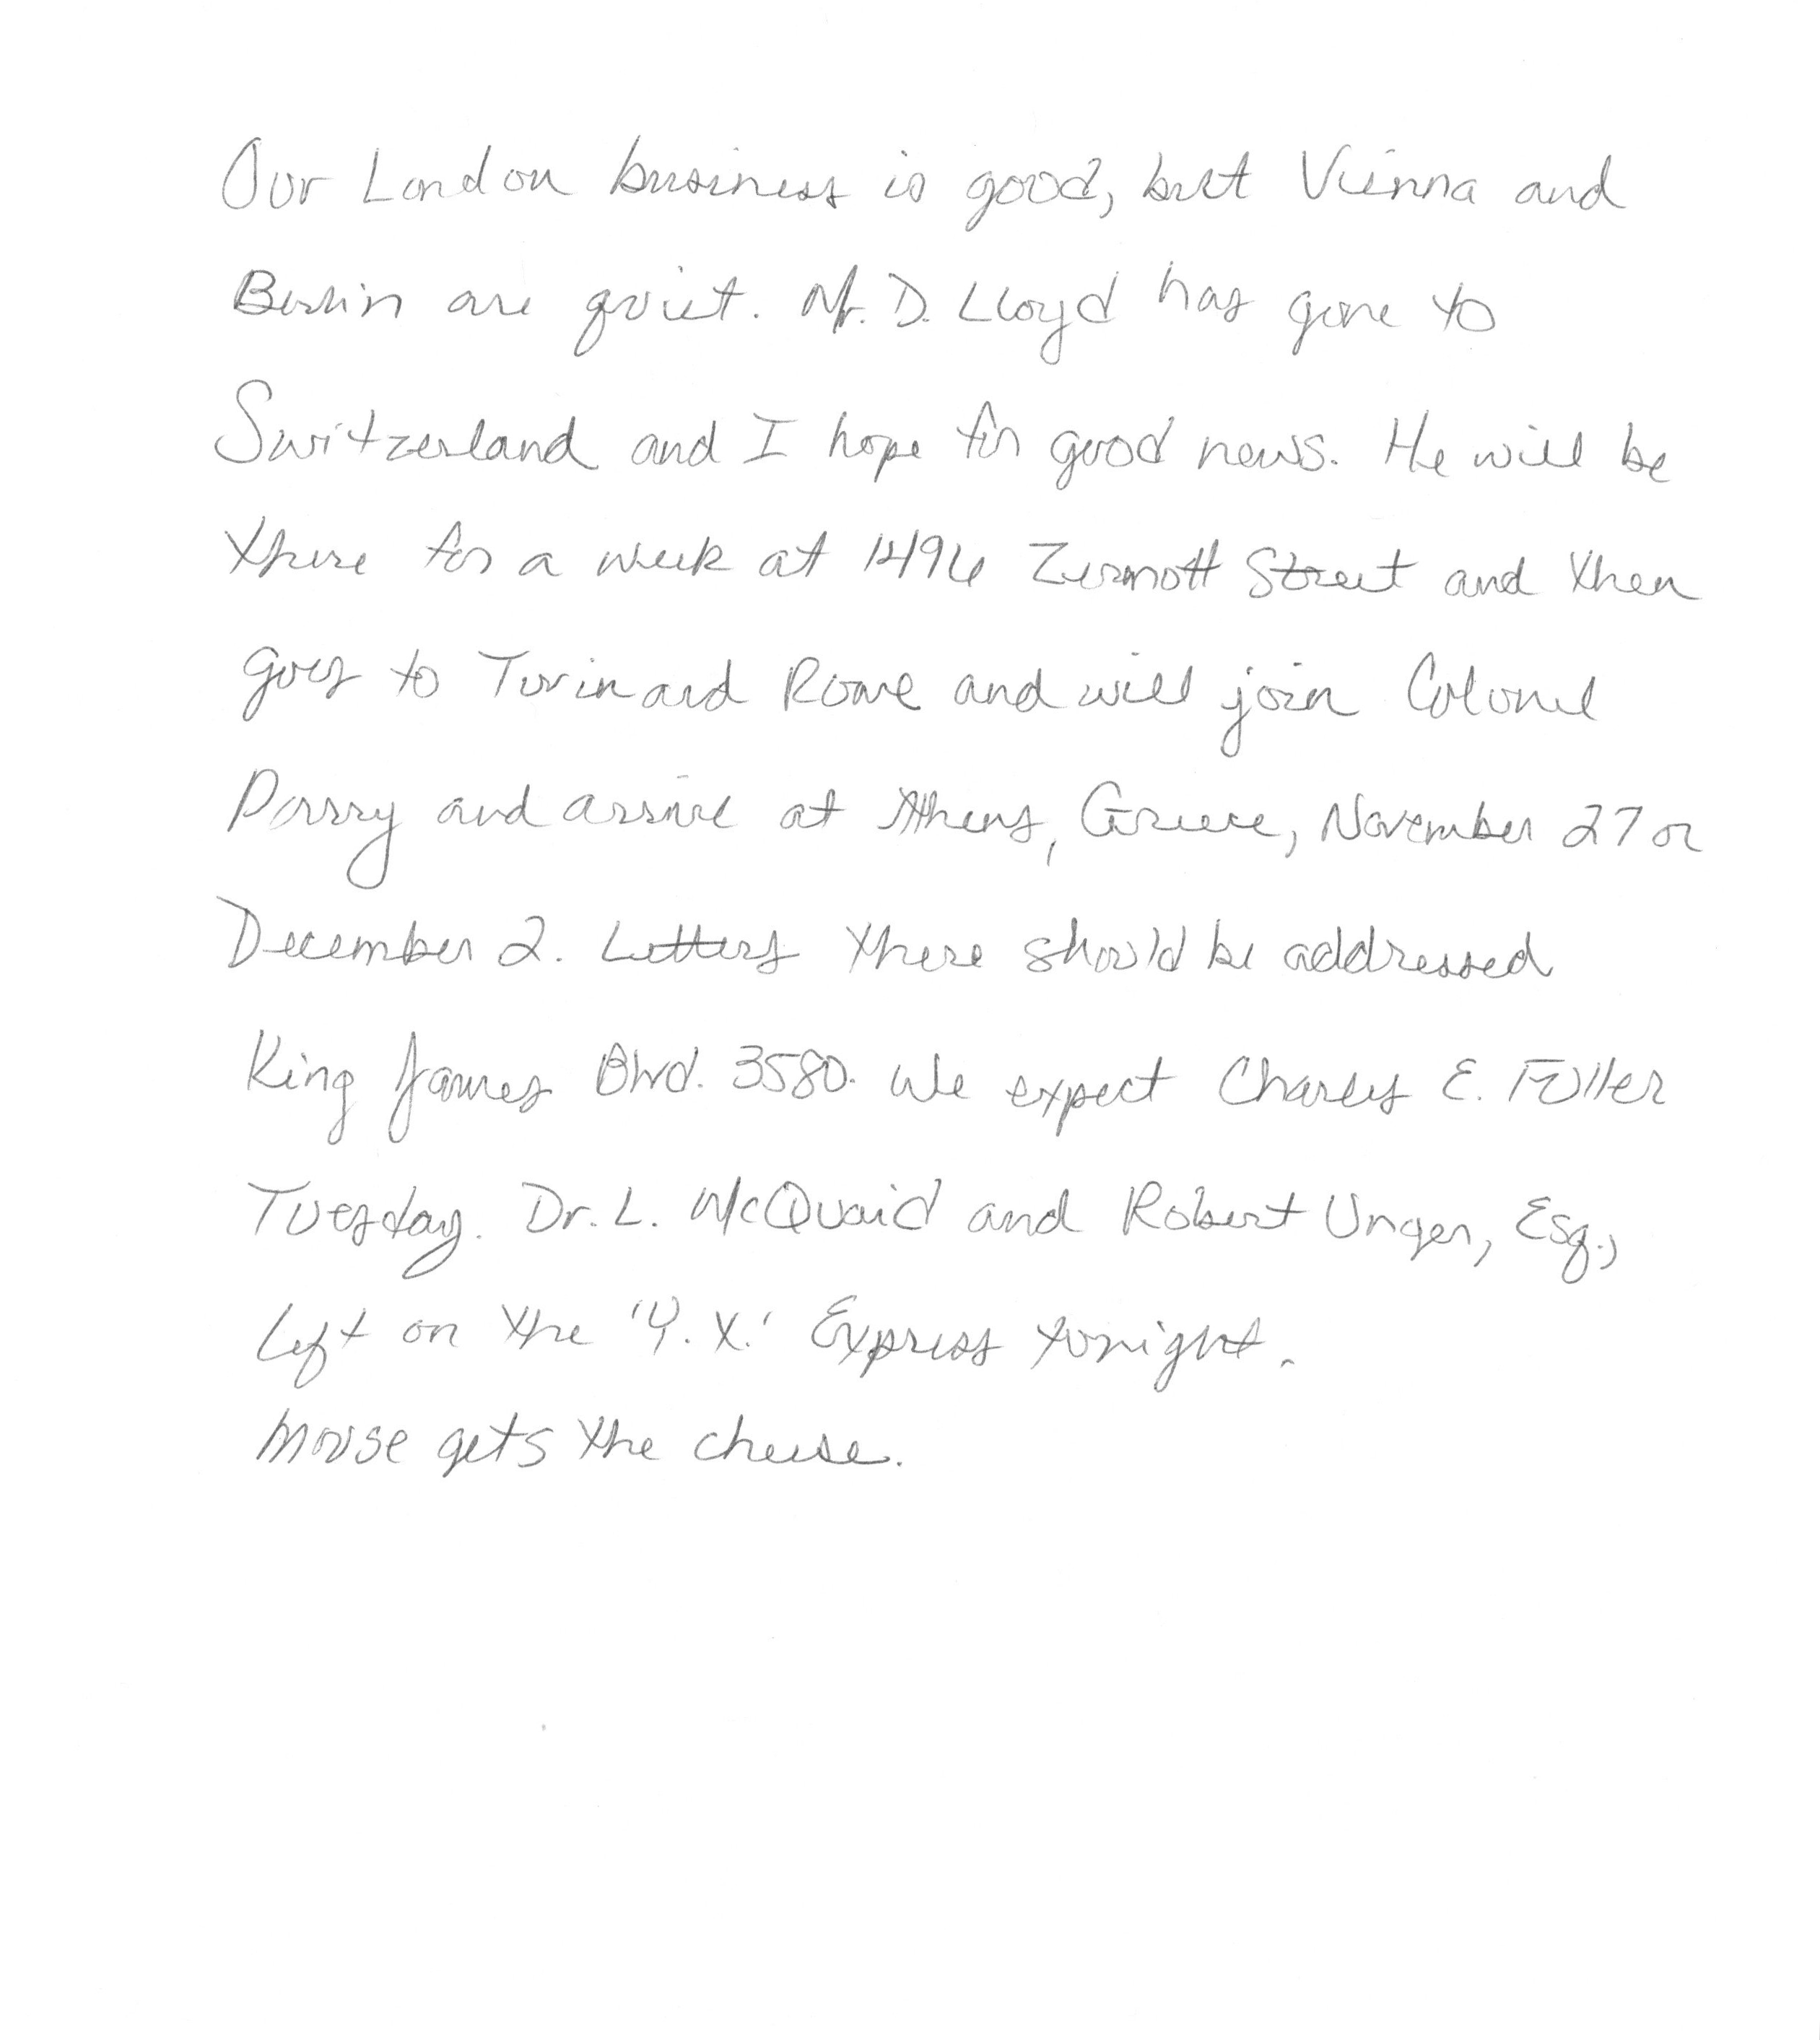 Our London business is good, but Vienna and
Berlin are quiet. Mr. D. Lloyd has gone to
Switzerland and I hope for good news. He will be
there for a week at 1496 Zermott Street and then
goes to Turin and Rome and will join Colonel
Parry and arrive at Athens, Greece, November 27 or
December 2. Letters there should be addressed
King James Blvd. 3580. We expect Charles E. Fuller
Tuesday. Dr. L. McQuaid and Robert Unger, Esq.,
left on the 'Y.X.' Express tonight.
Mouse gets the cheese.